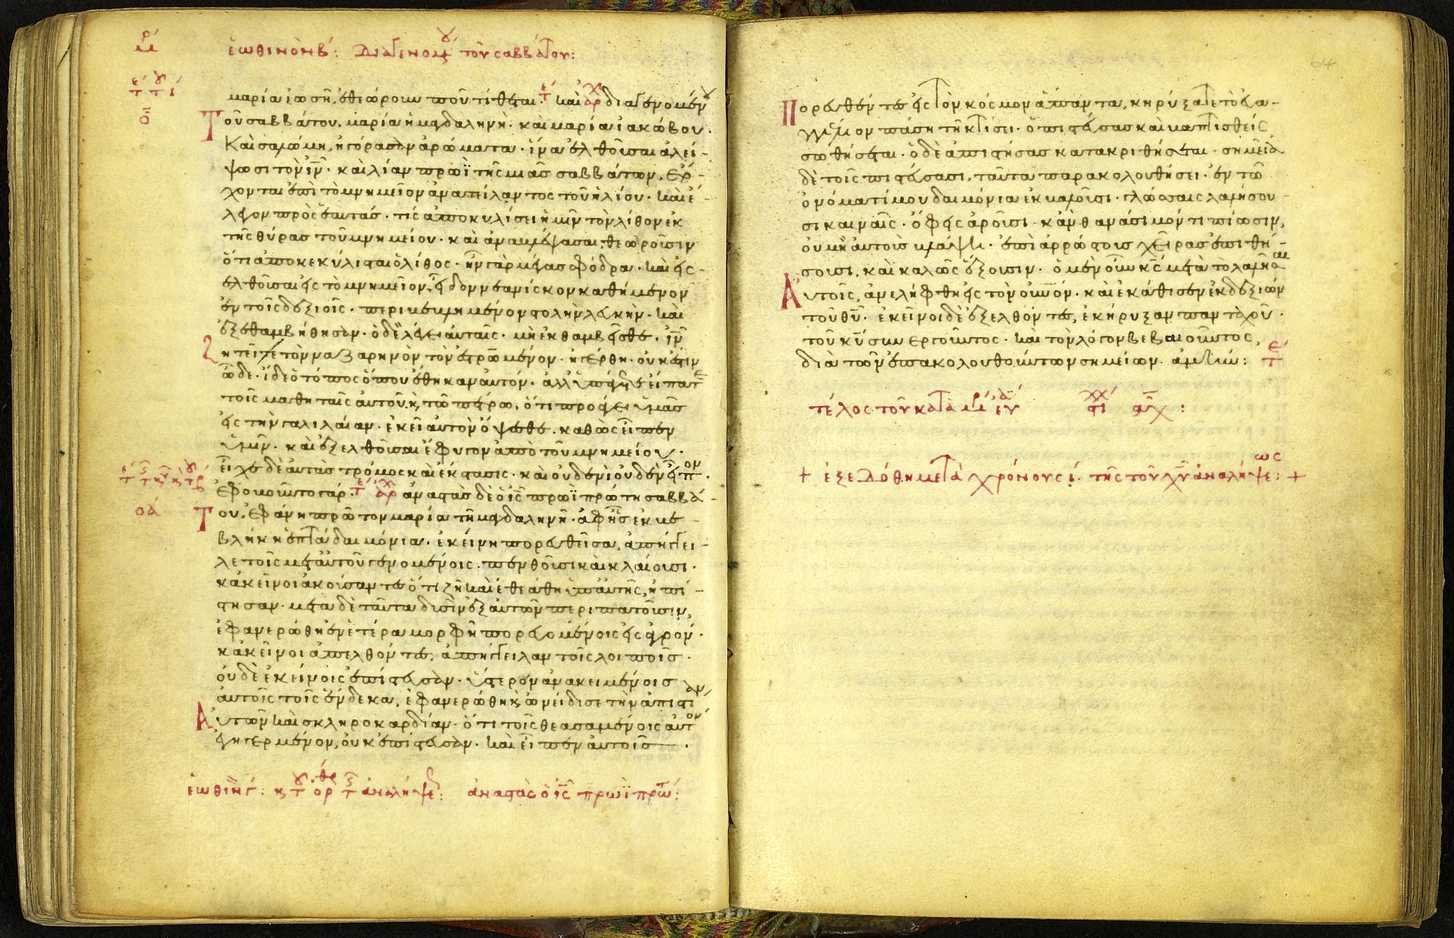 μ
ἑωθινὸν β΄: Διαγενομ τοῦ σαββάτου:
μαρία ἰωσῆ, ἐθεώρουν ποῦ τίθεται· καὶ διαγενομέν
Τοῦ σαββάτου, μαρία ἡ μαγδαληνὴ· καὶ μαρία ἰακώβου·
Καὶ σαλώμη, ἠγόρασαν ἀρώματα· ἵνα ἐλθοῦσαι ἀλεί-
ψωσι τὸν ἰν· καὶ λίαν πρωῒ τῆς μιᾶς σαββάτων, ἔρ-
χονται ἐπὶ τὸ μνημεῖον ἀνατείλαντος τοῦ ἡλίου· καὶ ἔ-
λεγον πρὸς ἑαυτάς· τίς ἀποκυλίσει ἡμῖν τὸν λίθον ἐκ
τῆς θύρας τοῦ μνημείου· καὶ ἀναβλέψασαι, θεωροῦσιν
ὅτι ἀποκεκύλισται ὁ λίθος· ἦν γὰρ μέγας σφόδρα· καὶ εἰσ-
ελθοῦσαι εἰς τὸ μνημεῖον, εἶδον νεανίσκον καθήμενον
ἐν τοῖς δεξιοῖς· περιβεβλημένον στολὴν λευκήν· καὶ
ἐξεθαμβήθησαν· ὁ δὲ λέγει αὐταῖς· μὴ ἐκθαμβεῖσθε· ἰν
ζητεῖτε τὸν ναζαρηνὸν τὸν ἐσταυρωμένον· ἠγέρθη· οὐκ ἔστιν
ὧδε· ἴδε ὁ τόπος ὅπου ἔθηκαν αὐτόν· ἀλλ' ὑπάγετε εἴπατε
τοῖς μαθηταῖς αὐτοῦ καὶ τῷ πέτρω, ὅτι προάγει ὑμᾶς
εἰς τὴν γαλιλαίαν· ἐκεῖ αὐτὸν ὄψεσθε· καθὼς εἶπεν
ὑμῖν· καὶ ἐξελθοῦσαι ἔφυγον ἀπὸ τοῦ μνημείου·
εἶχε δὲ αὐτὰς τρόμος καὶ ἔκστασις· καὶ οὐδενὶ οὐδὲν εἶπον
ἐφοβοῦντο γάρ· ἀναστὰς δὲ ὁ ις πρωῒ πρώτη σαββά-
οα Του, ἐφάνη πρῶτον μαρία τῆ μαγδαληνῆ· ἀφ' ἧς ἐκβε-
βλήκει ἑπτὰ δαιμόνια· ἐκείνη πορευθεῖσα, ἀπήγγει-
λε τοῖς μετ' αὐτοῦ γενομένοις· πενθοῦσι καὶ κλαίουσι·
κἀκεῖνοι ἀκούσαντες ὅτι ζῆ καὶ ἐθεάθη ὑπ' αὐτῆς, ἠπί-
στησαν· μετὰ δὲ ταῦτα δυσὶν ἐξ αὐτῶν περιπατοῦσιν,
ἐφανερώθη ἐν ἑτέρα μορφῆ πορευομένοις εἰς ἀγρόν·
κἀκεῖνοι ἀπελθόντες, ἀπήγγειλαν τοῖς λοιποῖς·
οὐδὲ ἐκείνοις ἐπίστευσαν· ὕστερον ἀνακειμένοις
αὐτοῖς τοῖς ἕνδεκα, ἐφανερώθη καὶ ὠνείδισε τὴν ἀπιστίαν
Αὐτῶν καὶ σκληροκαρδίαν· ὅτι τοῖς θεασαμένοις αὐτὸν
ἐγηγερμένον, οὐκ ἐπίστευσαν· καὶ εἶπεν αὐτοῖς·
ἑωθιν γ΄: ἀναλήψε: ἀναστὰς ὁ ις πρωῒ πρώ:
64
Πορευθέντες εἰς τὸν κόσμον ἅπαντα, κηρύξατε τὸ εὐα-
γγέλιον πάση τῆ κτίσει· ὁ πιστεύσας καὶ βαπτισθεὶς
σωθήσεται· ὁ δὲ ἀπιστήσας κατακριθήσεται· σημεῖα
δὲ τοῖς πιστεύσασι, ταῦτα παρακολουθήσει· ἐν τῶ
ὀνόματί μου δαιμόνια ἐκβαλοῦσι· γλώσσαις λαλήσου-
σι καιναῖς· ὄφεις ἀροῦσι· κἂν θανάσιμόν τι πίωσιν,
οὐ μὴ αὐτοὺς βλάψει· ἐπὶ ἀρρώστους χεῖρας ἐπιθή-
σουσι, καὶ καλῶς ἕξουσιν· ὁ μὲν οὖν κς μετὰ τὸ λαλῆσαι
Αὐτοῖς, ἀνελήφθη εἰς τὸν οὐνον· καὶ ἐκάθισεν ἐκ δεξιῶν
τοῦ θυ· ἐκεῖνοι δὲ ἐξελθόντες, ἐκήρυξαν πανταχοῦ·
τοῦ κυ συνεργοῦντος· καὶ τὸν λόγον βεβαιοῦντος,
διὰ τῶν ἐπακολουθούντων σημείων· ἀμήν:
τέλος τοῦ κατὰ μρ ευ στι αχ:
+ ἐξεδόθη μετὰ χρόνους ι τῆς τοῦ χυ ἀναλήψεως: +